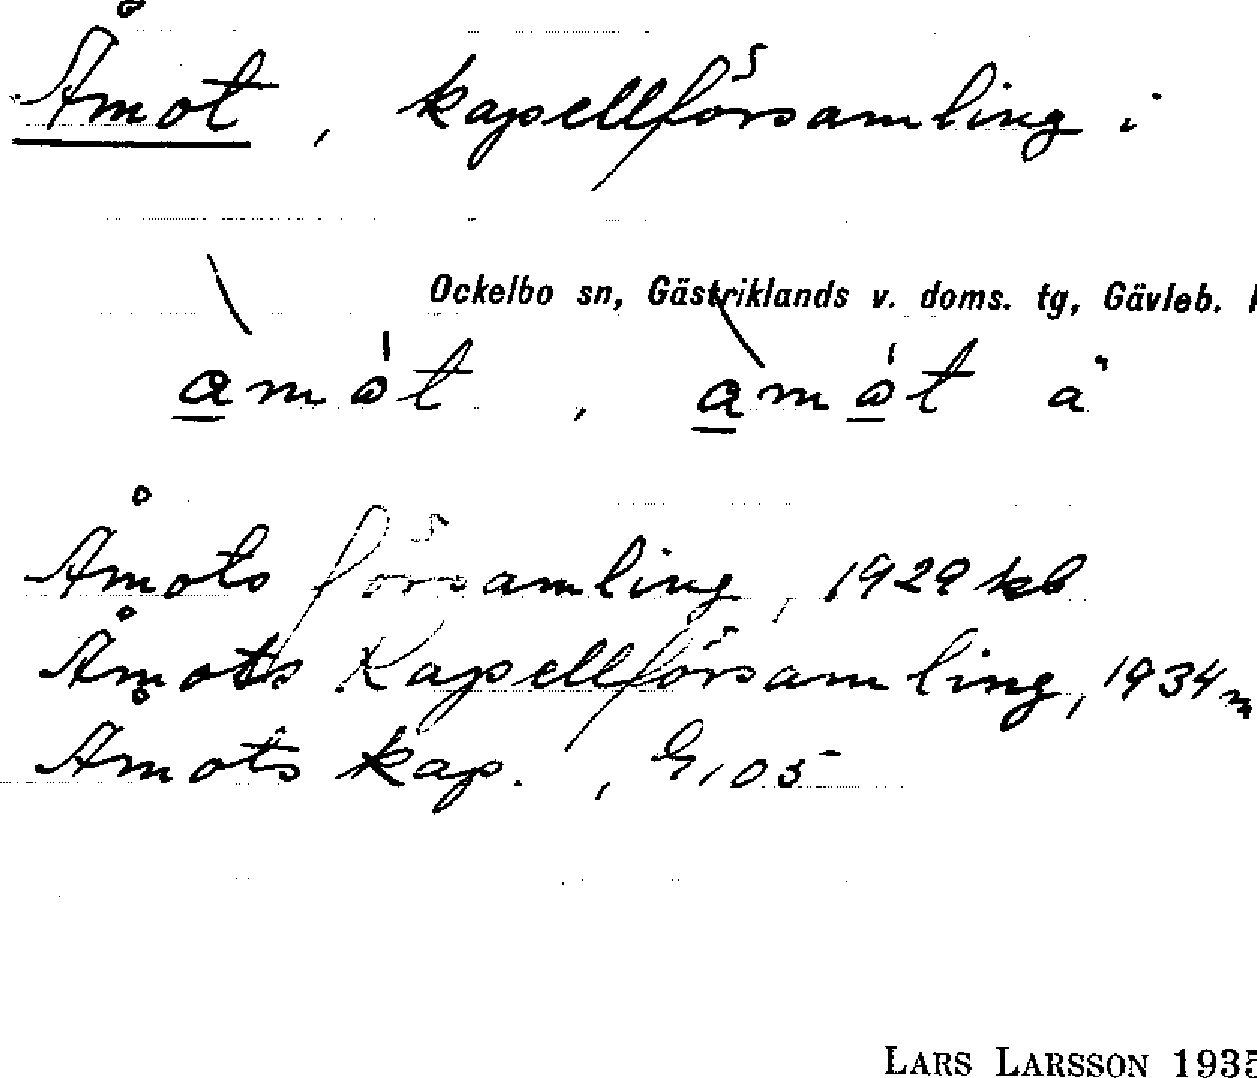 Åmot, kapellförsamling i
Ockelbo sn, Gästriklands v. doms. tg, Gävleb.
Åmots församling, 1929 kb
Åmots Kapellförsamling, 1934
Åmots kap., G, 05
LARS LARSSON 1935